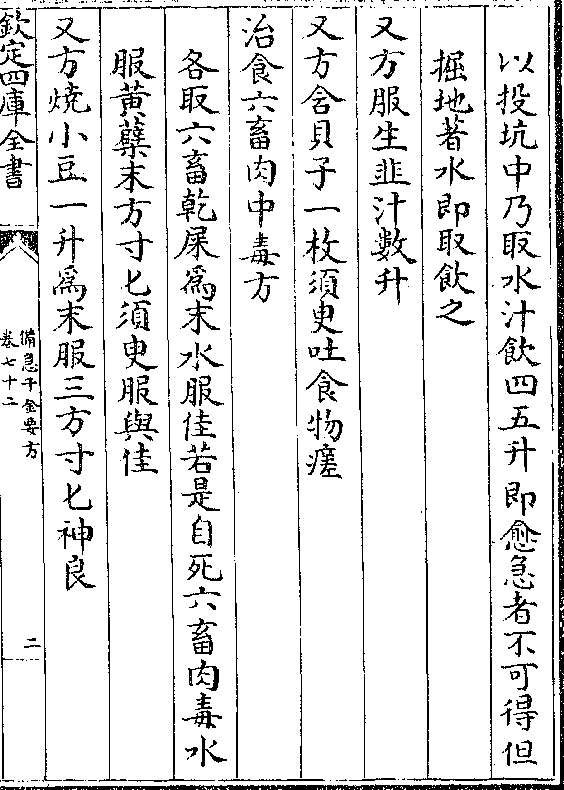 以投坑中乃取水汁飲四五升即愈急者不可得但
掘地著水即取飲之
又方服生韭汁數升
又方含貝子一枚須臾吐食物瘥
治食六畜肉中毒方
各取六畜乾屎為末水服佳若是自死六畜肉毒水
服黃蘗末方寸匕須臾服與佳
又方燒小豆一升為末服三方寸匕神良
欽定四庫全書
備急千金要方
卷七十二
二